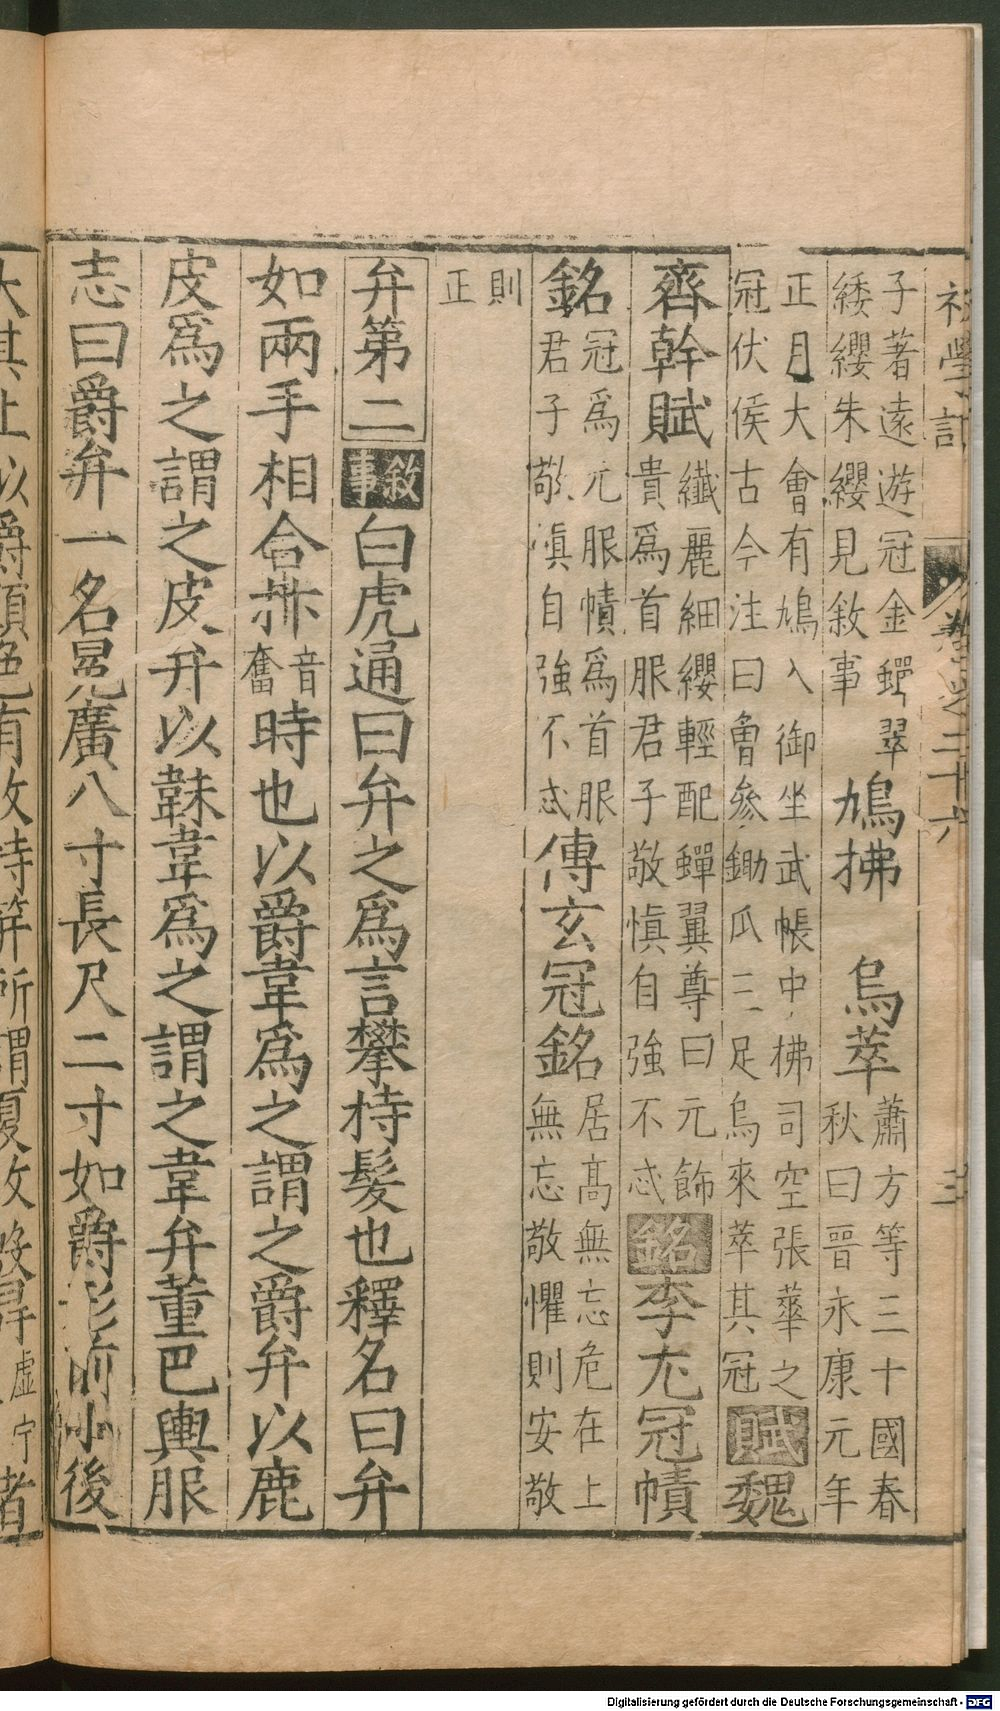 初學記 卷之二十六 三
子著遠遊冠金蟬翠
緌纓朱纓見敘事
鳩拂 烏萃
蕭方等三十國春
秋曰晉永康元年
正月大會有鳩入御坐武帳中拂司空張華之
冠伏侯古今注曰魯參鋤瓜三足烏來萃其冠
賦魏
齊幹賦
纖麗細纓輕配蟬翼尊曰元飾
貴爲首服君子敬慎自強不忒
銘李尤冠幘
銘
冠爲元服幘爲首服
君子敬滇自強不忒
傳玄冠銘
居高無忘危在上
無忘敬懼則安敬
則
正
弁第二 敘事 白虎通曰弁之爲言攀持髮也釋名曰弁
如兩手相合拚音奮時也以爵韋爲之謂之爵弁以鹿
皮爲之謂之皮弁以韎韋爲之謂之韋弁董巴輿服
志曰爵弁一名冕廣八寸長尺二寸如爵形前小後
大其上以爵頭色有收持笄所謂夏收殷冔虛宁者
Digitalisierung gefördert durch die Deutsche Forschungsgemeinschaft - DFG